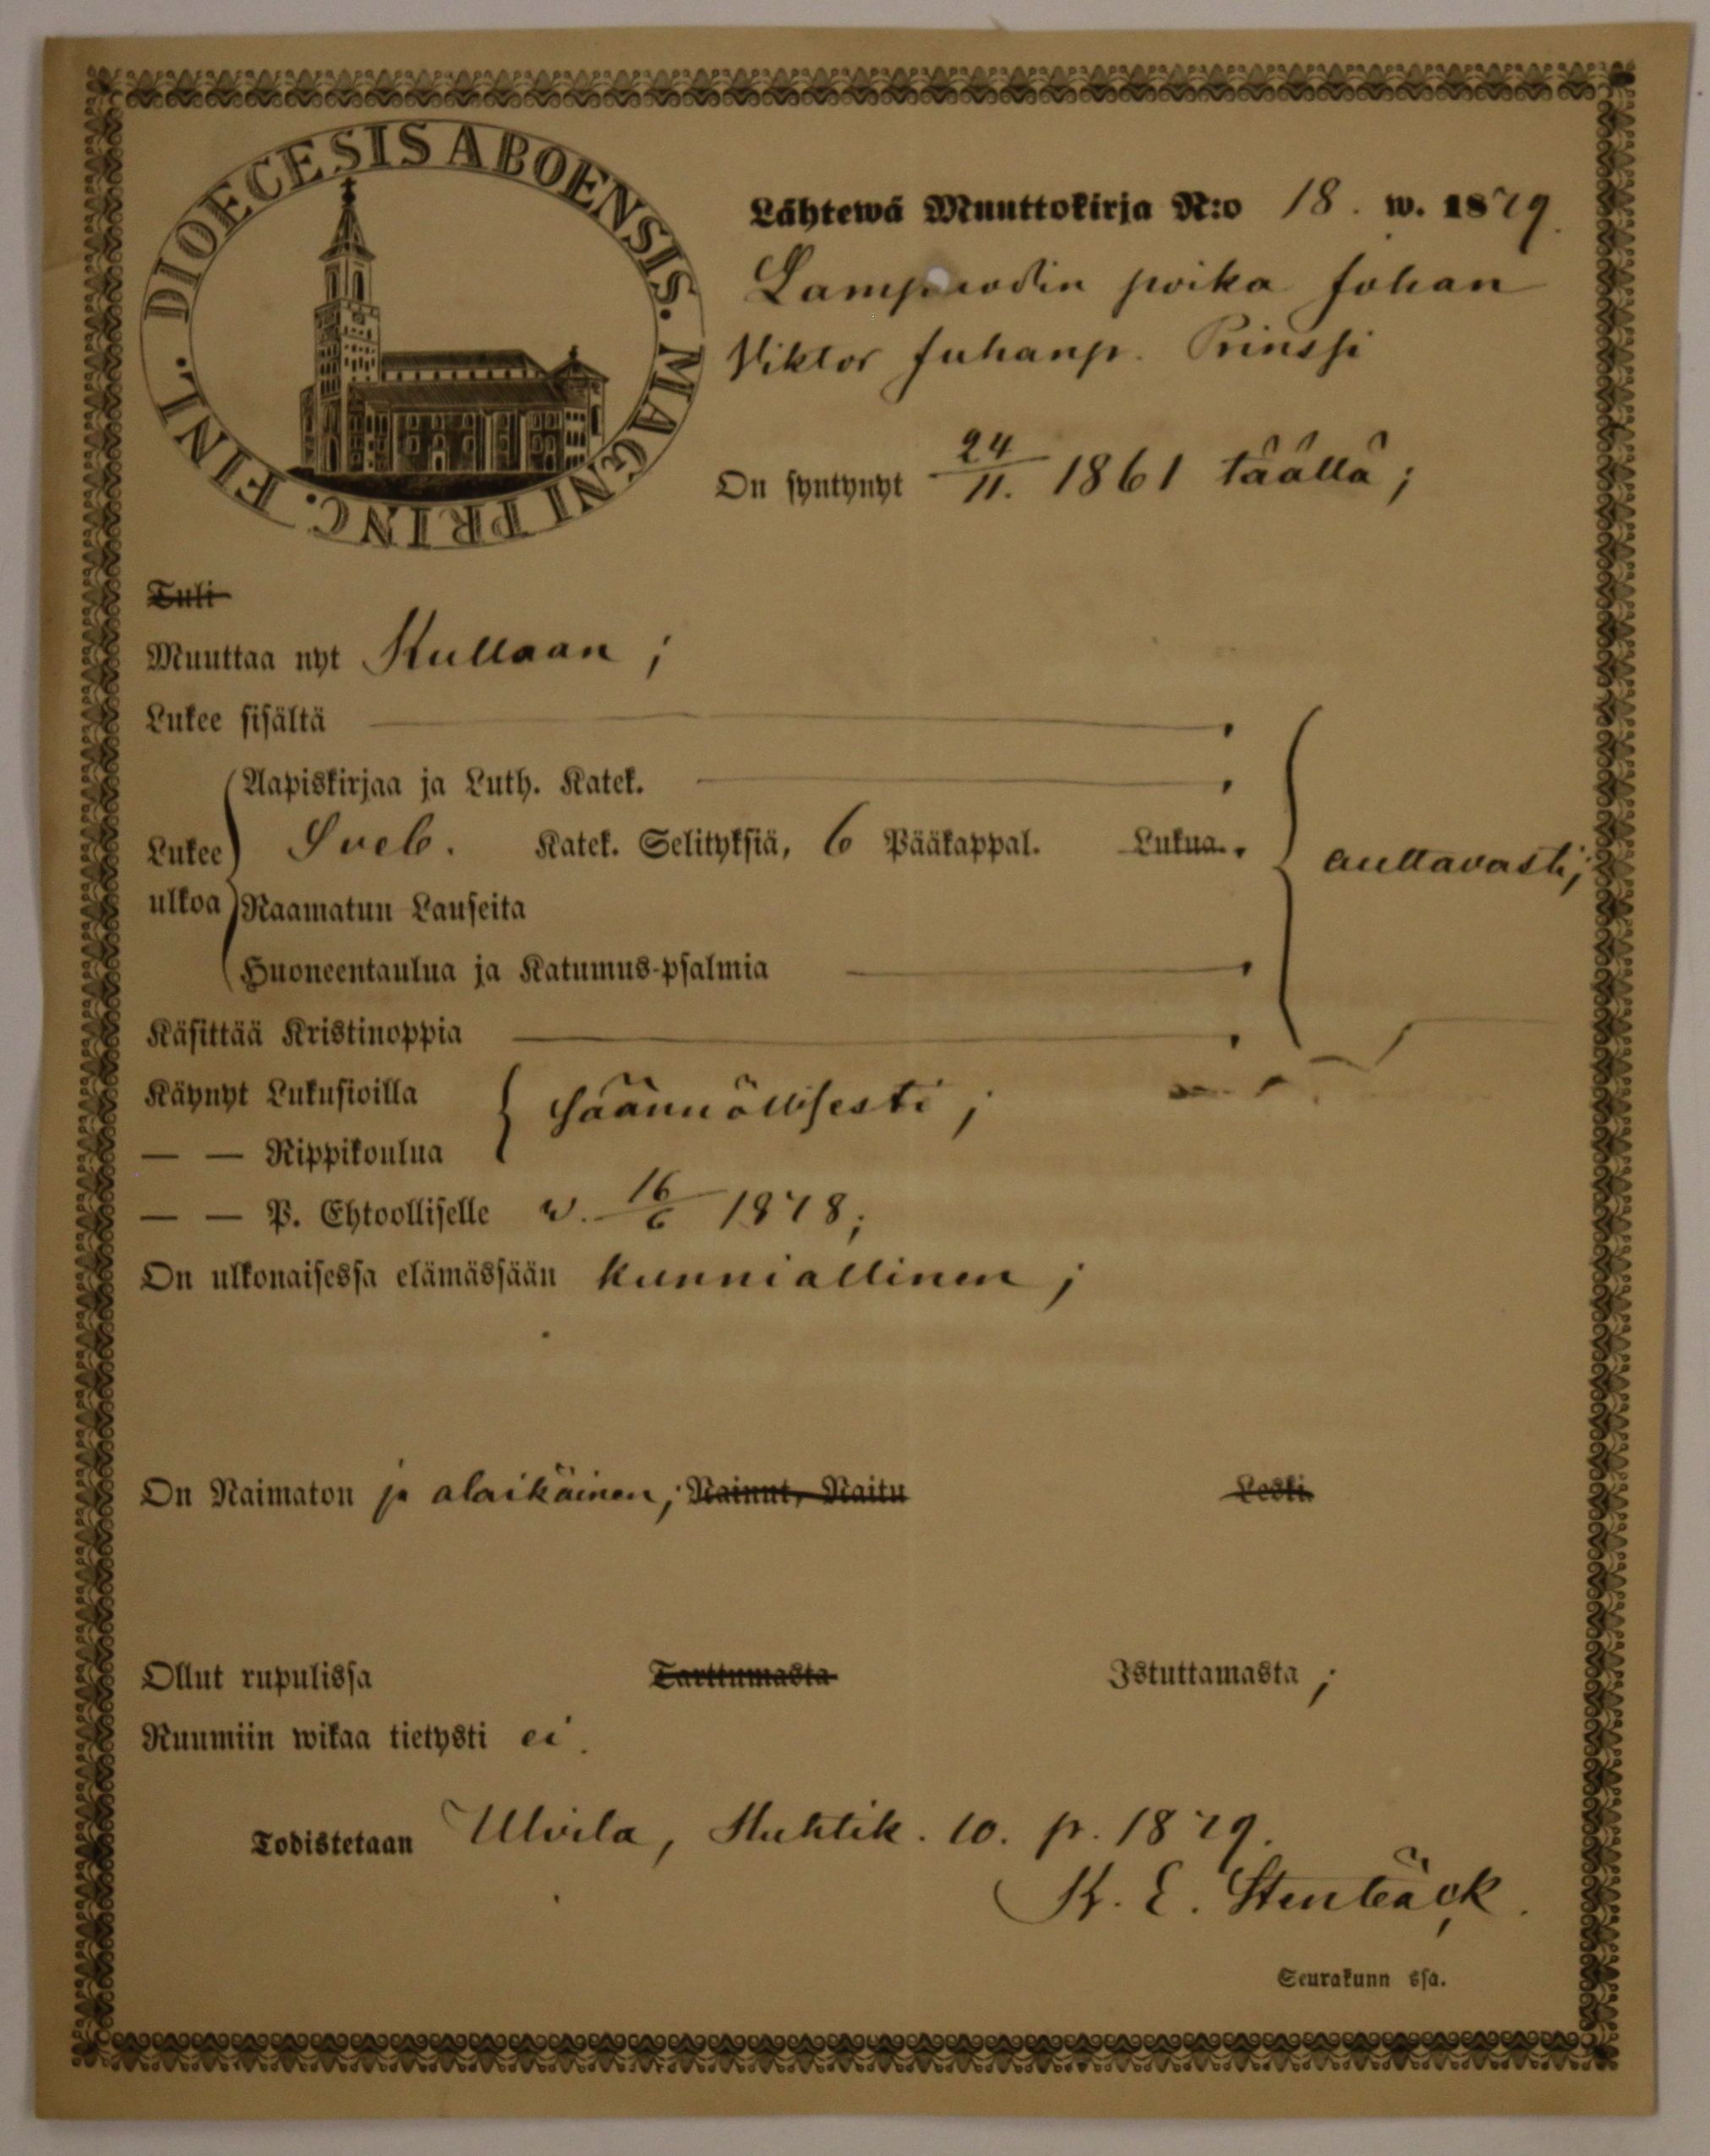 DIOECESIS ABOENSIS. MAGNI PRINC. FINL.
Lähtewä Muuttokirja N:o 18. w. 1879.
poika Johan
Viktor Juhanp. Prinssi
On syntynyt 24/11. 1861 täällä;
Tuli
Muuttaa nyt Kullaan;
Lukee sisältä
Aapiskirjaa ja Luth. Katek.
Lukee ulkoa
Sveb. Katek. Selityksiä, 6 Pääkappal. Lukua.
auttavasti;
Raamatun Lauseita
Huoneentaulua ja Katumus-psalmia
Käsittää Kristinoppia
Käynyt Lukusioilla
säännöllisesti;
— — Rippikoulua
— — P. Ehtoolliselle w. 16/6 1878;
On ulkonaisessa elämässään kunniallinen;
On Naimaton ja alaikäinen; Nainut, Naitu Leski.
Ollut rupulissa Tarttumasta Istuttamasta;
Ruumiin wikaa tietysti ei.
Todistetaan Ulvila, Huhtik. 10. p. 1879.
K. E. Stenbäck.
Seurakunn ssa.